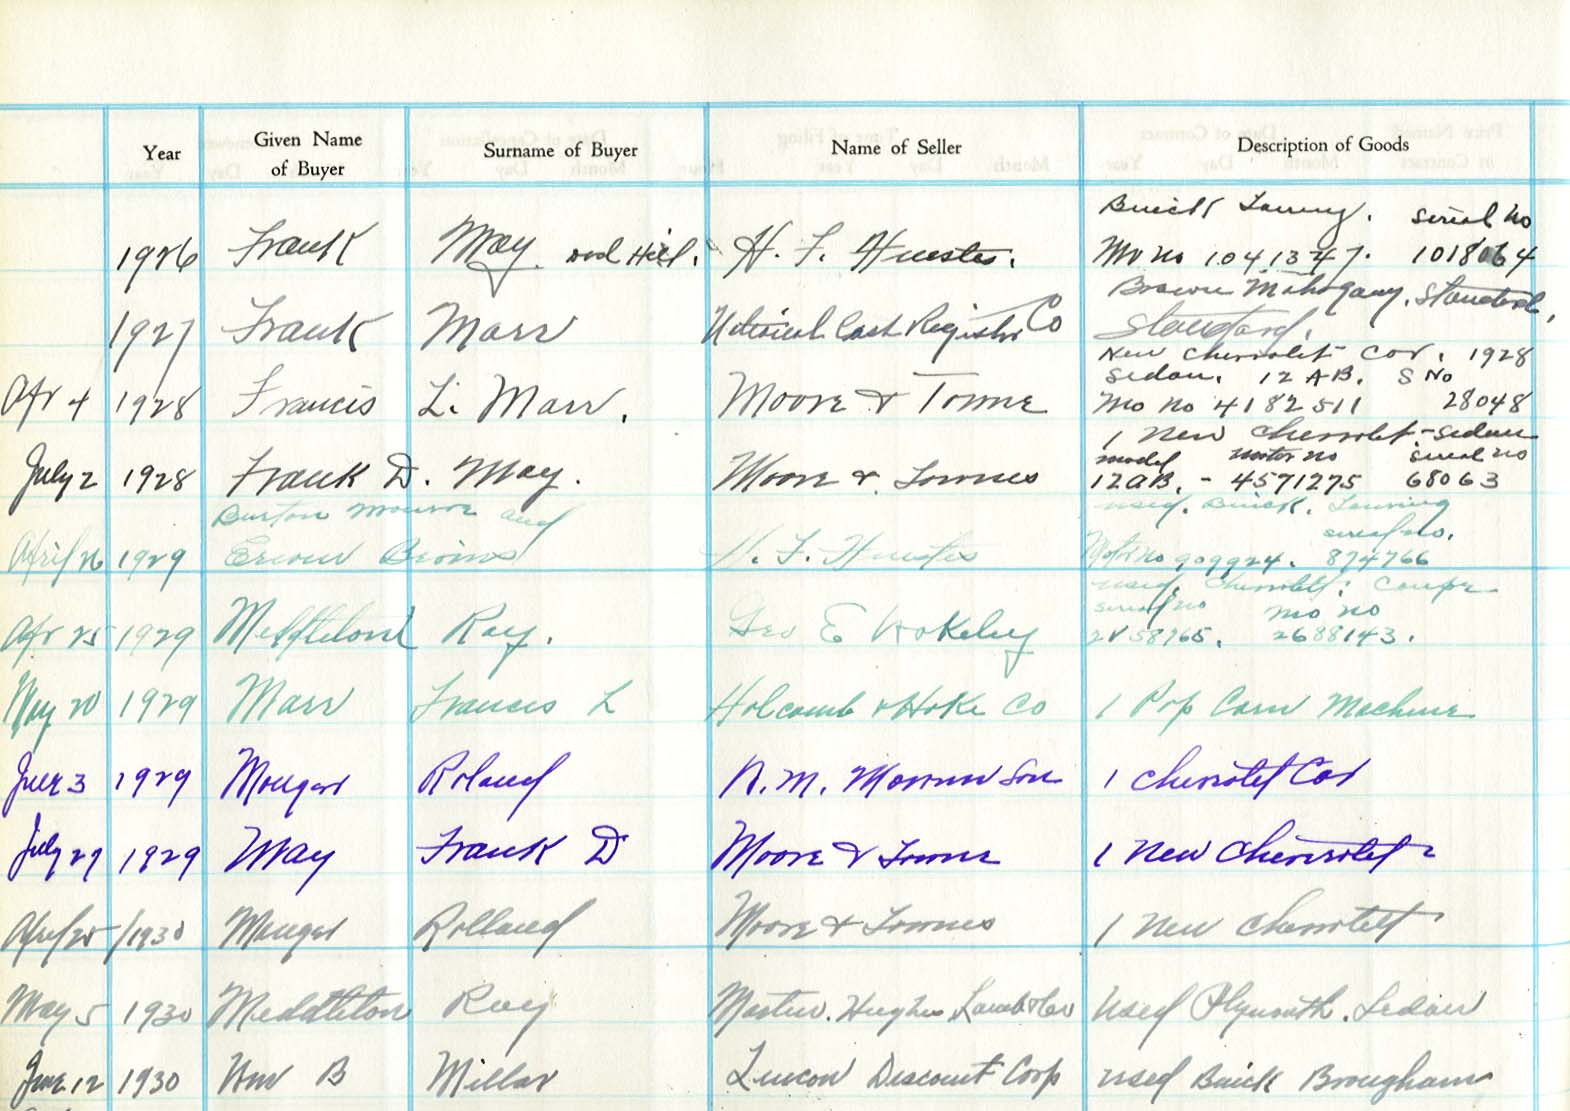 Year Given Name of Buyer Surname of Buyer Name of Seller Description of Goods
Buick Touring. serial no
1926 Frank May H. F. Huestis. Mo no 1041347. 1018064
Brown Mahogany. Standard,
1927 Frank Marr National Cash Register Co Standard.
New Chevrolet Car. 1928
Sedan. 12 AB. S No
Apr 4 1928 Francis L. Marr. Moore & Towne Mo no 4182511 28048
1 New Chevrolet - Sedan
model motor no serial no
July 2 1928 Frank D. May. Moore & Townes 12AB. - 4571275 68063
Burton Monroe and used. Buick. Touring
serial no.
April 26 1929 H. F. Huestis Motor no 909924. 874766
used. Chevrolet: Coupe
serial no mo no
Apr 25 1929 Meddleton Ray. Geo E Wokeley 2V58765. 2688143.
May 20 1929 Marr Francis L Holcomb & Hoke Co 1 Pop Corn Machine
July 3 1929 Monger Roland 1 Chevrolet Car
July 27 1929 May Frank D Moore & Towne 1 New Chevrolet
April 25 1930 Monger Rolland Moore & Townes 1 New Chevrolet
May 5 1930 Meddleton Ray Hughes Used Plymouth. Sedan
June 12 1930 Wm B Millar Lincon Discount Corp used Buick Brougham